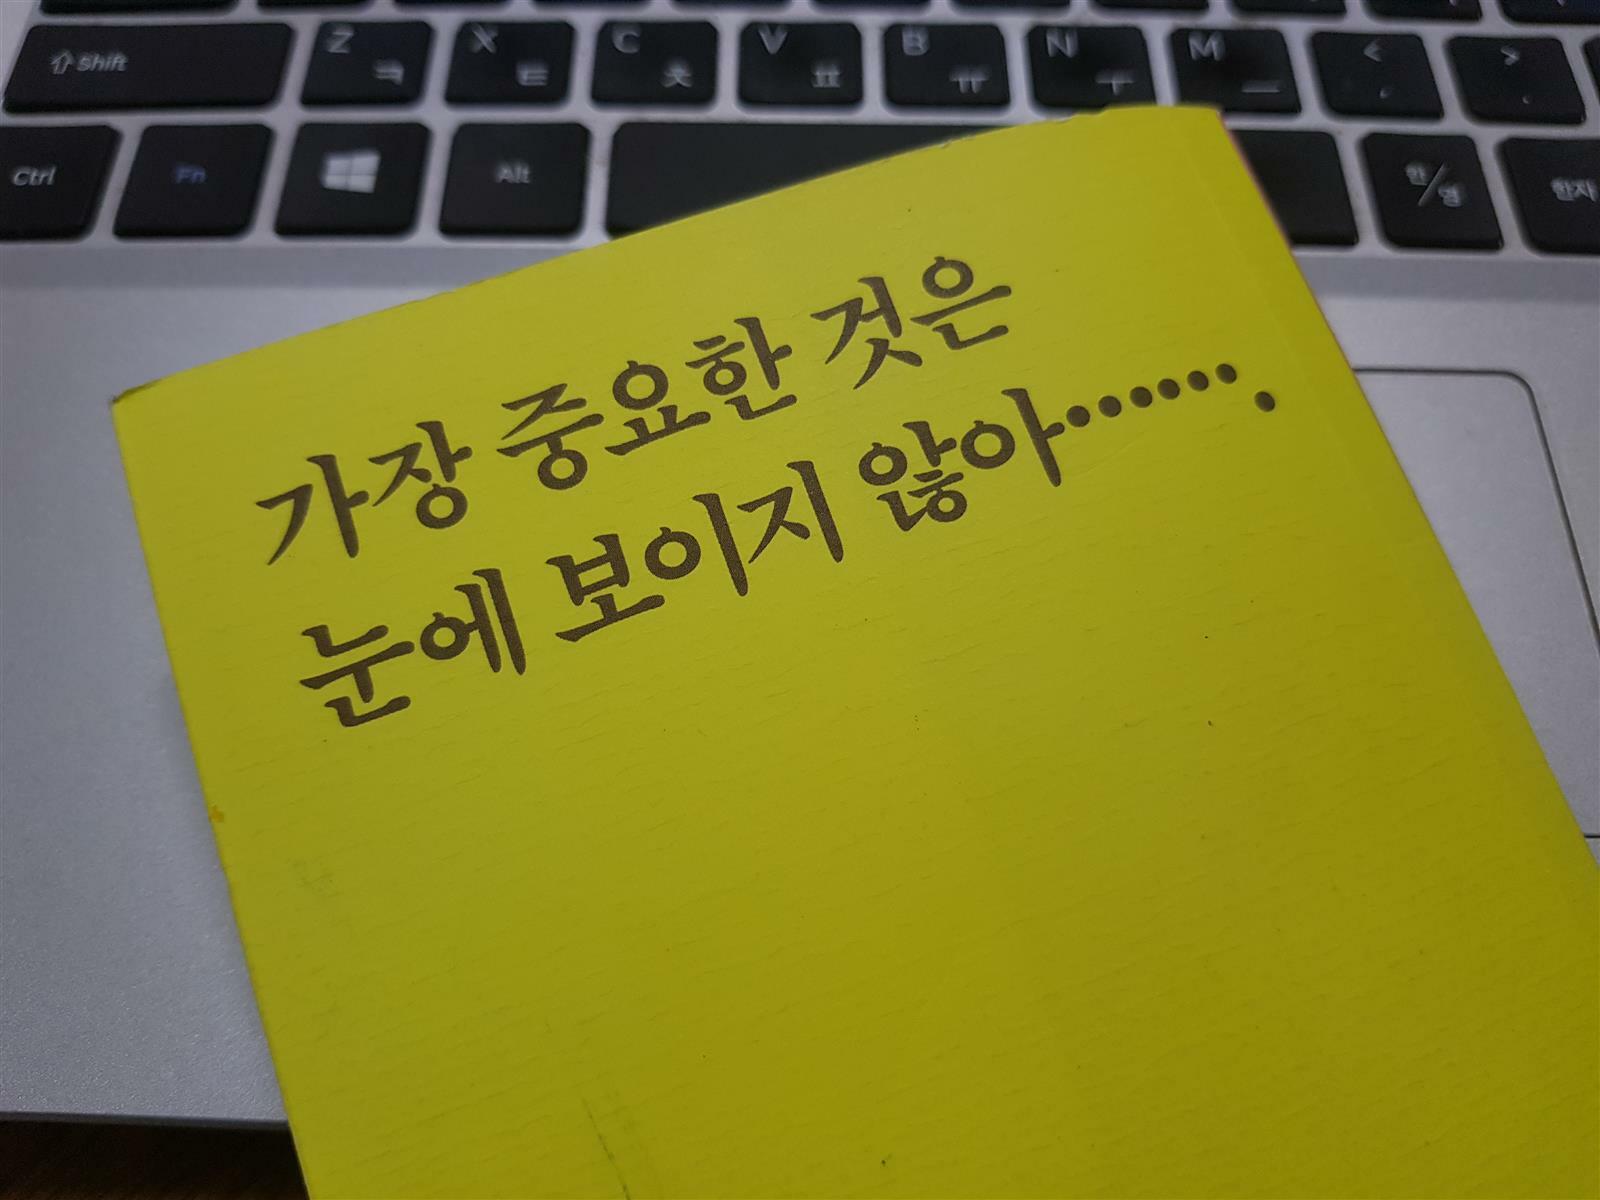 Shift Z ㅋ X ㅌ C ㅊ V ㅍ B ㅠ N ㅜ M ㅡ < , > .
Ctrl Fn Alt 한/영 한자
가장 중요한 것은
눈에 보이지 않아…….